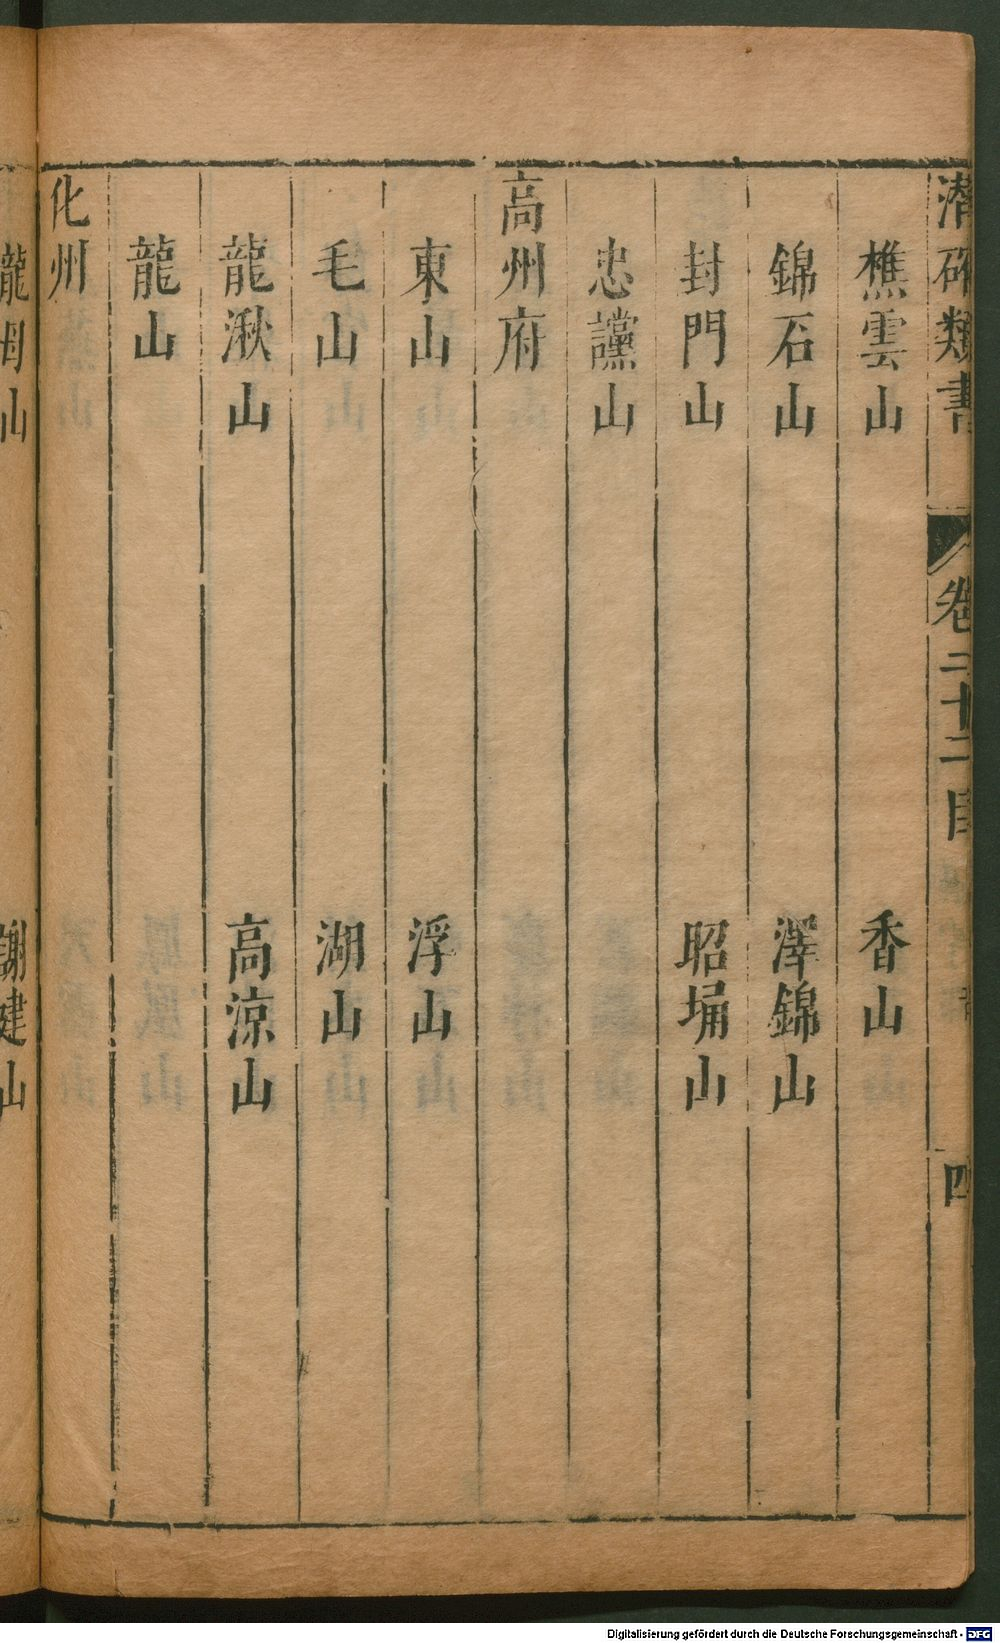 潛確類書
卷二十二目
四
樵雲山 香山
錦石山 澤錦山
封門山 昭埇山
忠讜山
高州府
東山 浮山
毛山 湖山
龍湫山 高涼山
龍山
化州
龍母山 謝建山
Digitalisierung gefördert durch die Deutsche Forschungsgemeinschaft - DFG